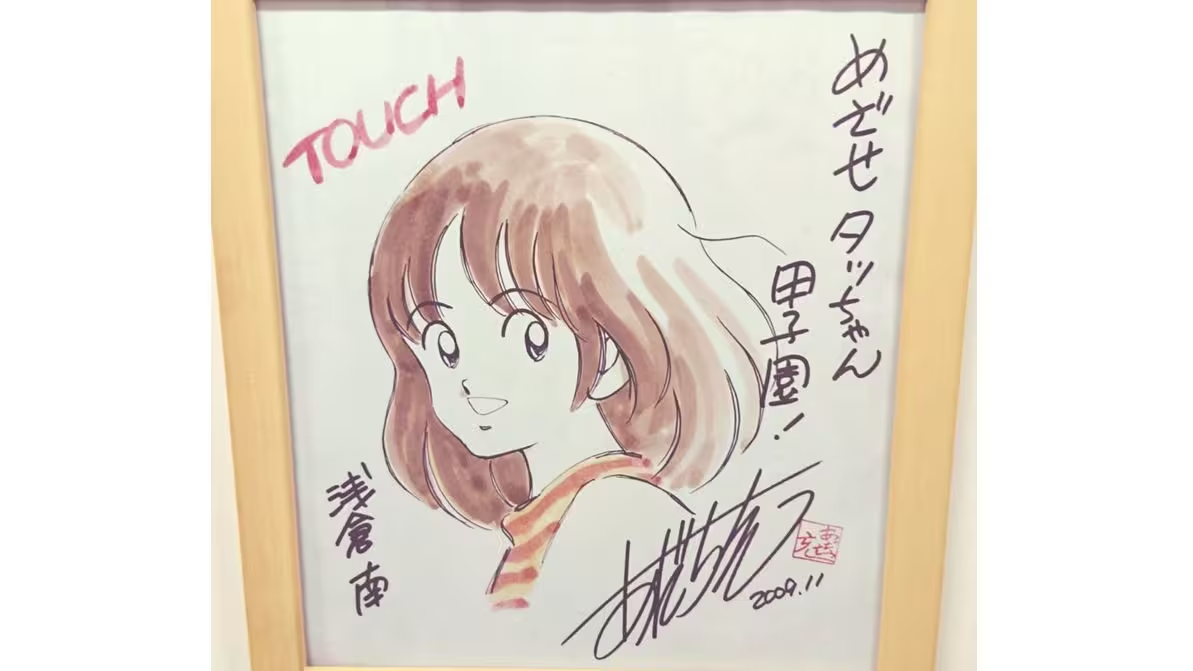 TOUCH
めざせ タッちゃん
甲子園!
浅倉 南
あだち充
2009.11